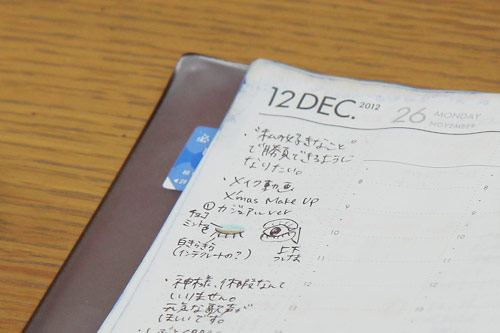 12 DEC. 2012
26 MONDAY
NOVEMBER
・"私の好きなこと"
で勝負できるように
なりたい。
・メイク動画
Xmas Make UP
①カジュアルver
チョコ
ミント色
白きらきら
(インテグレートの?)
上下
・神様、休暇なんて
いりません。
元気な歌声が
ほしいです。
8
9
10
11
12
13